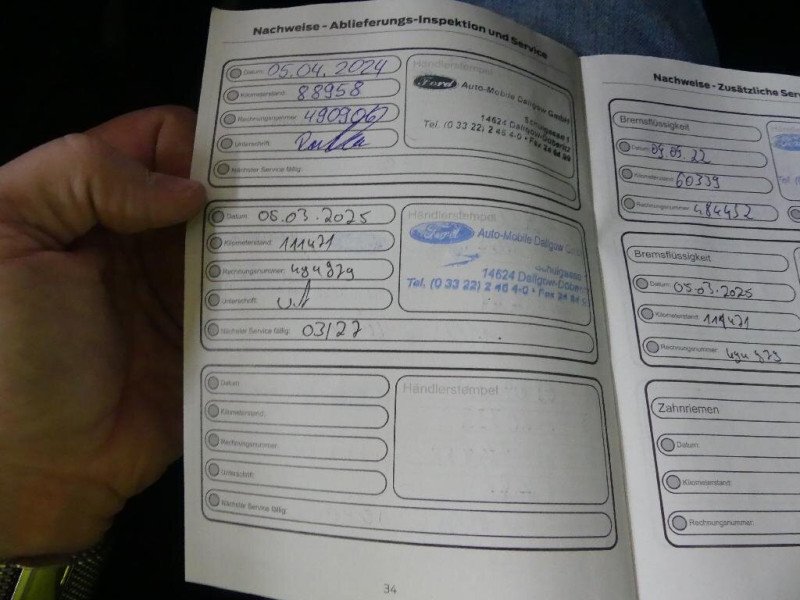 Nachweise - Ablieferungs-Inspektion und Service
Datum: 05.04.2024
Kilometerstand: 88958
Rechnungsnummer: 490906
Unterschrift:
Nächster Service fällig:
Händlerstempel
Ford Auto-Mobile Dallgow GmbH
14624 Dallgow-Döberitz
Tel. (0 33 22) 2 45 4-0 • Fax
Datum: 05.03.2025
Kilometerstand: 111471
Rechnungsnummer:
Unterschrift:
Nächster Service fällig: 03/27
Händlerstempel
Ford Auto-Mobile Dallgow
14624 Dallgow-Döberitz
Tel. (0 33 22) 2 45 4-0 • Fax
Datum:
Kilometerstand:
Rechnungsnummer:
Unterschrift:
Nächster Service fällig:
Händlerstempel
34
Nachweise - Zusätzliche
Bremsflüssigkeit
Datum: 09.09.22
Kilometerstand: 60339
Rechnungsnummer: 484452
Bremsflüssigkeit
Datum: 05.03.2025
Kilometerstand: 111471
Rechnungsnummer:
Zahnriemen
Datum:
Kilometerstand:
Rechnungsnummer: